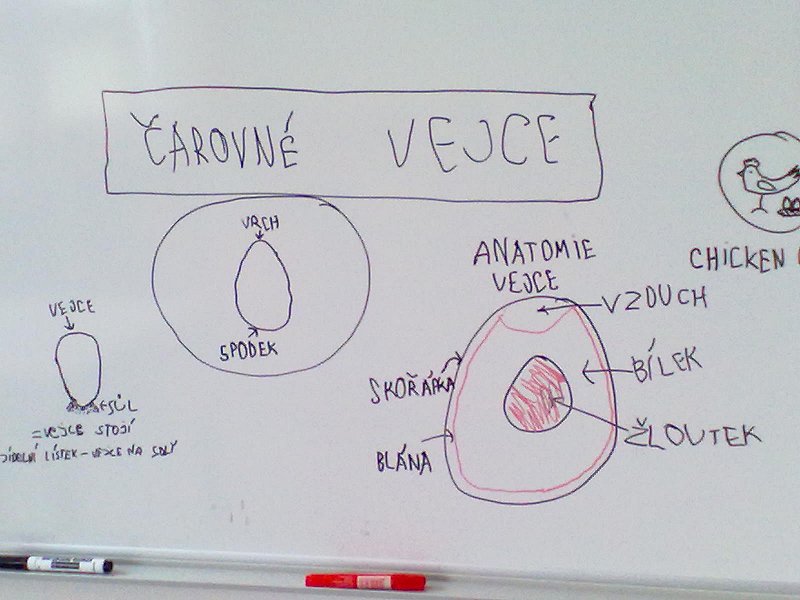 ČAROVNÉ VEJCE
VRCH
SPODEK
VEJCE
SŮL
=VEJCE STOJÍ
JÍDELNÍ LÍSTEK - VEJCE NA SOLI
ANATOMIE
VEJCE
VZDUCH
BÍLEK
ŽLOUTEK
SKOŘÁPKA
BLÁNA
CHICKEN